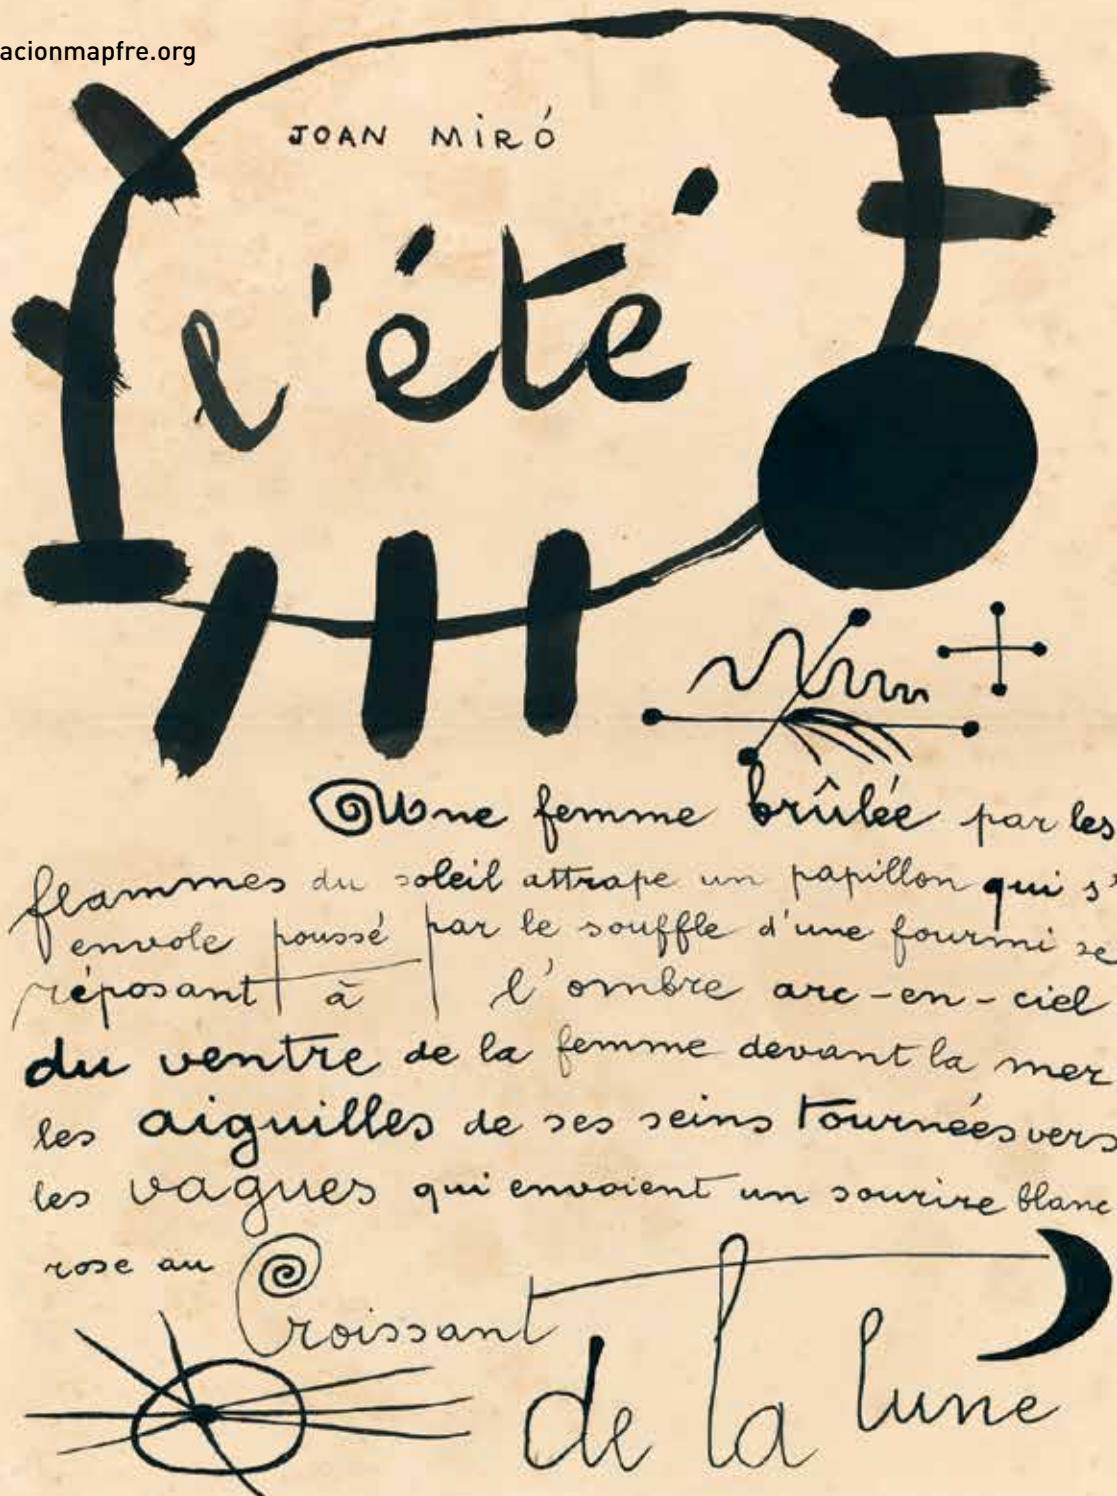 acionmapfre.org
JOAN MIRÓ
l'été
Une femme brûlée par les
flammes du soleil attrape un papillon qui s'
envole poussé par le souffle d'une fourmi se
réposant à l'ombre arc-en-ciel
du ventre de la femme devant la mer
les aiguilles de ses seins tournées vers
les vagues qui envoient un sourire blanc
rose au
Croissant
de la lune